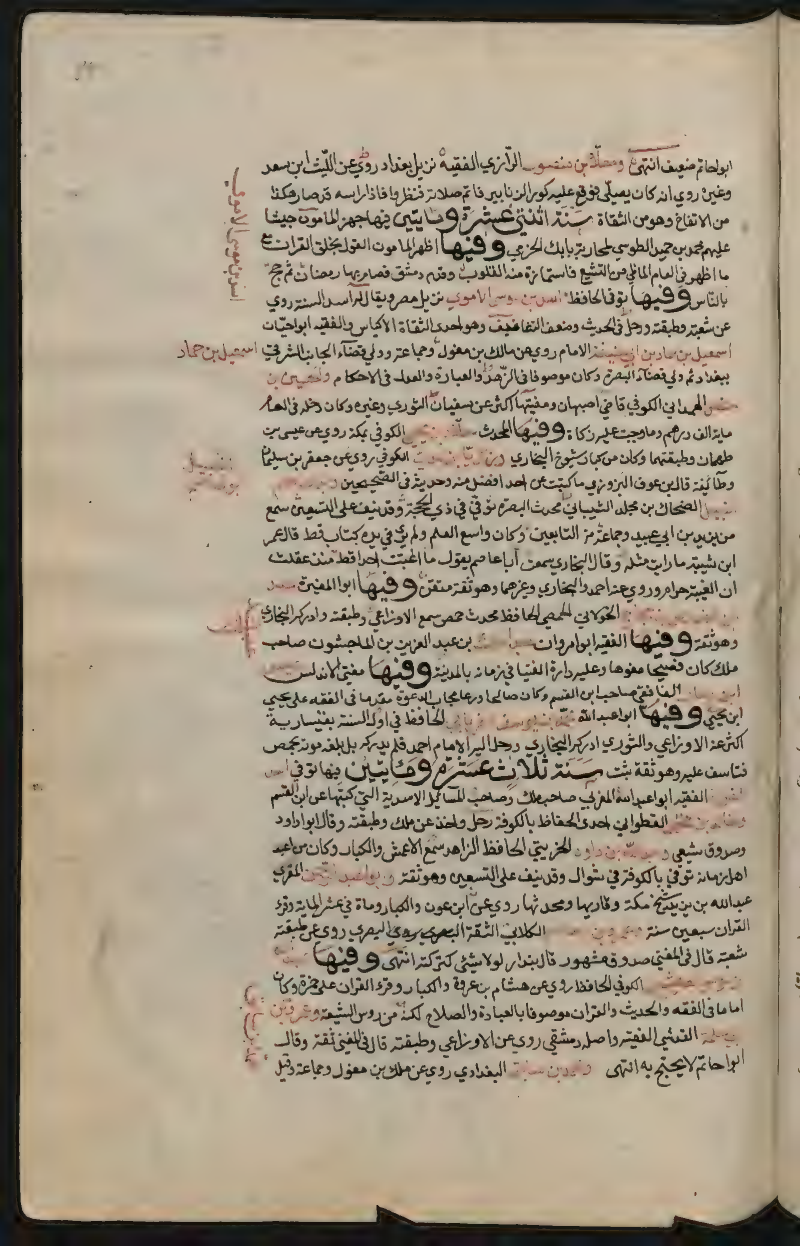 ابو حاتم ضعيف انتهى ومعلا بن منصور الرازي الفقيه نزيل بغداد روي عن الليث ابن سعد
وغيره روي انه كان يصلي فوقع عليه كور الزنابير فاتم صلاته فنظروا فاذا راسه قد صار هكذا
من الانتفاخ وهو من الثقاة سنة اثنتي عشرة ومايتين فيها جهز المامون جيشا
عليهم محمد بن حميد الطوسي لمحاربة بابك الخرمي وفيها اظهر المامون القول بخلق القران مع
ما اظهر في العام الماضي من التشيع فاشمازة منه القلوب وقدم دمشق فصام بها رمضان ثم حج
بالناس وفيها توفي الحافظ اسد بن موسى الاموي نزيل مصر ويقال له اسد السنة روي
عن شعبة وطبقته ورحل في الحديث وصنف التصانيف وهو احدي الثقاة الاكياس والفقيه ابو حيان
اسمعيل بن حماد بن ابي حنيفة الامام روي عن مالك بن مغول وجماعة وولي قضاء الجانب الشرقي
ببغداد ثم ولي قضاء البصرة وكان موصوفا في الزهد والعبادة والعدل في الاحكام والحسين بن
حفص الهمداني الكوفي قاضي اصبهان ومفتيها اكثر عن سفيان الثوري وغيره وكان دخله في العام
ماية الف درهم وما وجبت عليه زكاة وفيها المحدث خلاد بن يحيى الكوفي بمكة روي عن عيسى بن
طهمان وطبقتهما وكان من كبار شيوخ البخاري الكوفي روي عن جعفر بن سليمان
وطائفة قال بن عوف البزوري ما كتبت عن احد افضل منه وحديثه في الصحيحين
الضحاك بن مخلد الشيباني محدث البصرة توفي في ذي الحجة وقد نيف على التسعين سمع
من يزيد بن ابي عبيد وجماعة من التابعين وكان واسع العلم ولم يري في يده كتاب قط قال عمر
ابن شيبة ما رايت مثله وقال البخاري سمعت أبا عاصم يقول ما اغتبت احدا قط منذ عقلت
ان الغيبة حرام وروي عنه احمد والبخاري وغيرهما وهو ثقة متقن وفيها ابو المغيرة
الخولاني الحمصي الحافظ محدث حمص سمع الاوزاعي وطبقته وادركه البخاري
وهو ثقة وفيها الفقيه ابو امروان بن عبد العزيز بن الماجشون صاحب
ملك كان فصيحا مفوها وعليه دارة الفتيا في زمانه بالمدينة وفيها مفتي الاندلس
الغافقي صاحب ابن القسم وكان صالحا ورعا مجاب الدعوة مقدما في الفقه على يحيي
ابن يحيي وفيها ابو عبد الله محمد بن يوسف الفريابي الحافظ في اول السنة بقيسارية
اكثر عن الاوزاعي والثوري ادركه البخاري ورحل اليه الامام احمد فلم يدركه بل بلغه موته بحمص
فتاسف عليه وهو ثقة ثبت سنة ثلاث عشرة ومايتين فيها توفي اسد
الفقيه ابو عبد الله المغربي صاحب ملك وصاحب المسائل الاسدية التي كتبها عن ابن القسم
وخالد بن مخلد القطواني احدى الحفاظ بالكوفة رحل واخذ عن ملك وطبقته وقال ابو داود
وصدوق شيعي وعبد الله بن داود الخريبي الحافظ الزاهد سمع الاعمش والكبار وكان من اعبد
اهل زمانه توفي بالكوفة في شوال وقد نيف على التسعين وهو ثقة وابو عبد الرحمن المقري
عبد الله بن يزيد شيخ مكة وقاريها ومحدثها روي عن ابن عون والكبار ومات في عشر الماية وقرء
القران سبعين سنة وعمرو بن عاصم الكلابي الثقة البصري روي عن طبقته
شعبة قال في المغني صدوق مشهور قال بندار لولا شيئ لتركته انتهى وفيها
الكوفي الحافظ روي عن هشام بن عروة والكبار وقرء القران على حمزة وكان
اماما في الفقه والحديث والقران موصوفا بالعبادة والصلاح لكنه من روس الشيعة وعمرو بن
ابي سلمة التنيسي الفقيه واصله دمشقي روي عن الاوزاعي وطبقته قال في المغني ثقة وقال
ابو حاتم لا يحتج به انتهى ومحمد بن سابق البغدادي روي عن ملك بن مغول وجماعة وقيل
اسد بن موسى الاموي
اسمعيل بن حماد